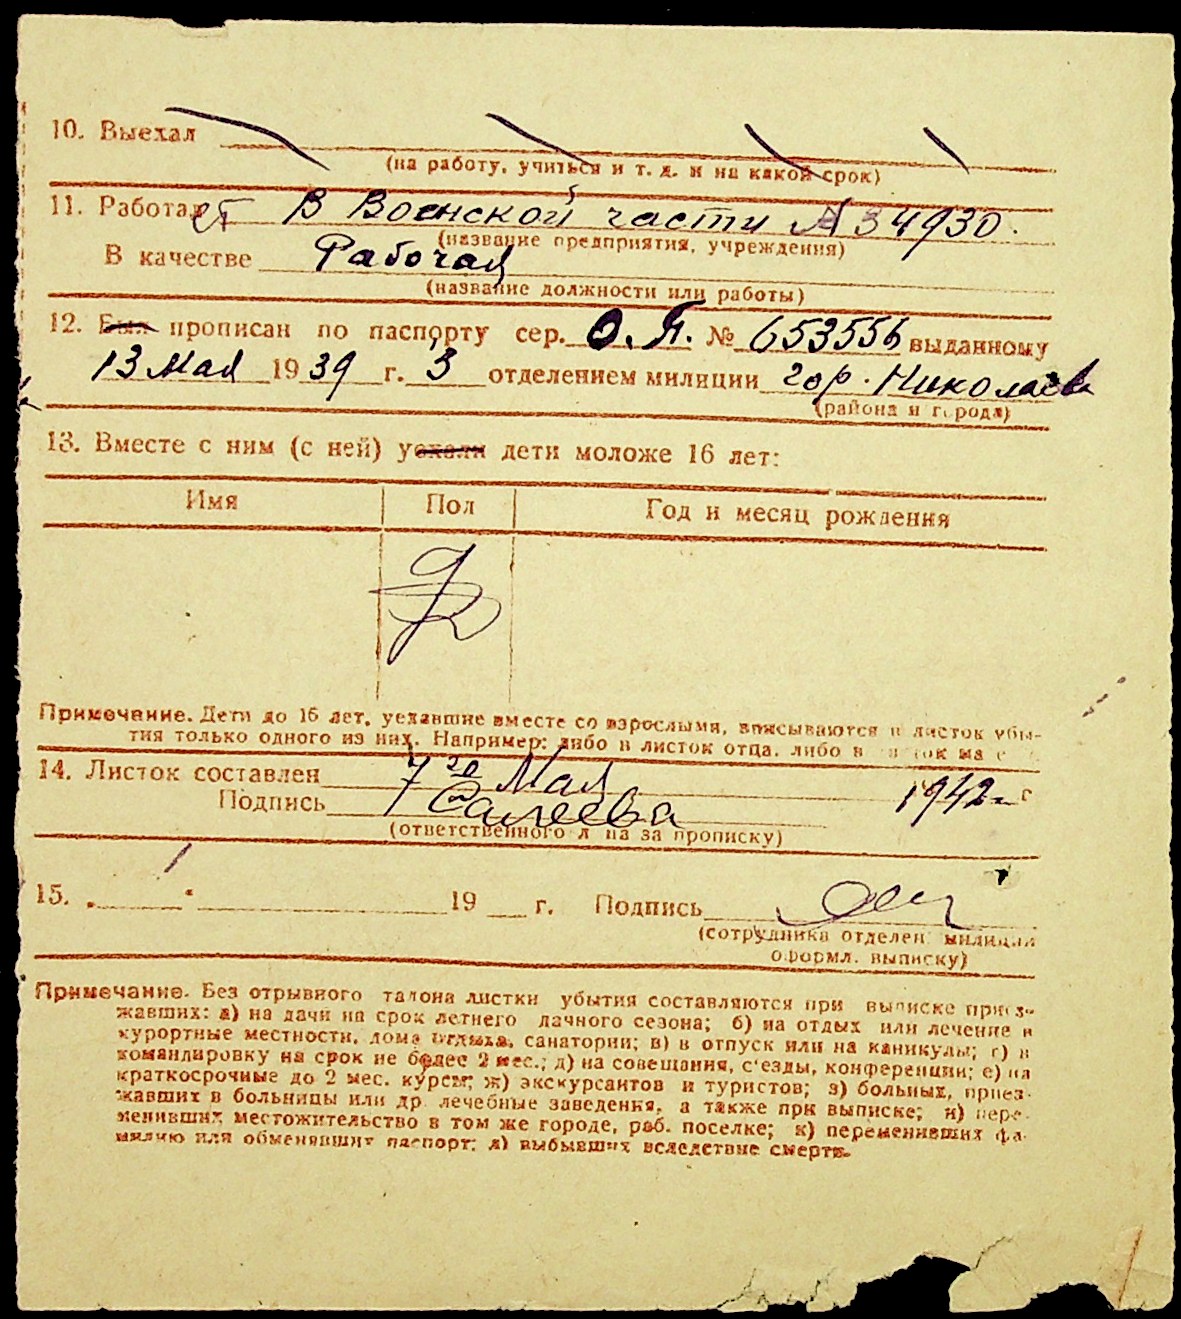 10. Выехал
(на работу, учиться и т. д. и на какой срок)
11. Работает В Воинской части № 34930.
(название предприятия, учреждения)
В качестве Рабочая
(название должности или работы)
12. Был прописан по паспорту сер. О. Я. № 653556 выданному
13 Мая 1939 г. 3 отделением милиции гор. Николаева
(района и города)
13. Вместе с ним (с ней) уехали дети моложе 16 лет:
Имя Пол Год и месяц рождения
Примечание. Дети до 16 лет, уехавшие вместе со взрослыми, вписываются в листок убы-
тия только одного из них. Например: либо в листок отца, либо в
14. Листок составлен 7го Мая 1942 г
Подпись
(ответственного л ца за прописку)
15. " " 19 г. Подпись
(сотрудника отделен. милиции
оформл. выписку)
Примечание. Без отрывного талона листки убытия составляются при выписке приез-
жавших: а) на дачи на срок летнего дачного сезона; б) на отдых или лечение в
курортные местности, дома отдыха, санатории; в) в отпуск или на каникулы; г) в
командировку на срок не более 2 мес.; д) на совещания, с'езды, конференции; е) на
краткосрочные до 2 мес. курсы; ж) экскурсантов и туристов; з) больных, приез-
жавших в больницы или др. лечебные заведения, а также при выписке; и) пере-
менивших местожительство в том же городе, раб. поселке; к) переменивших фа-
милию или обменявших паспорт; л) выбывших вследствие смерти.